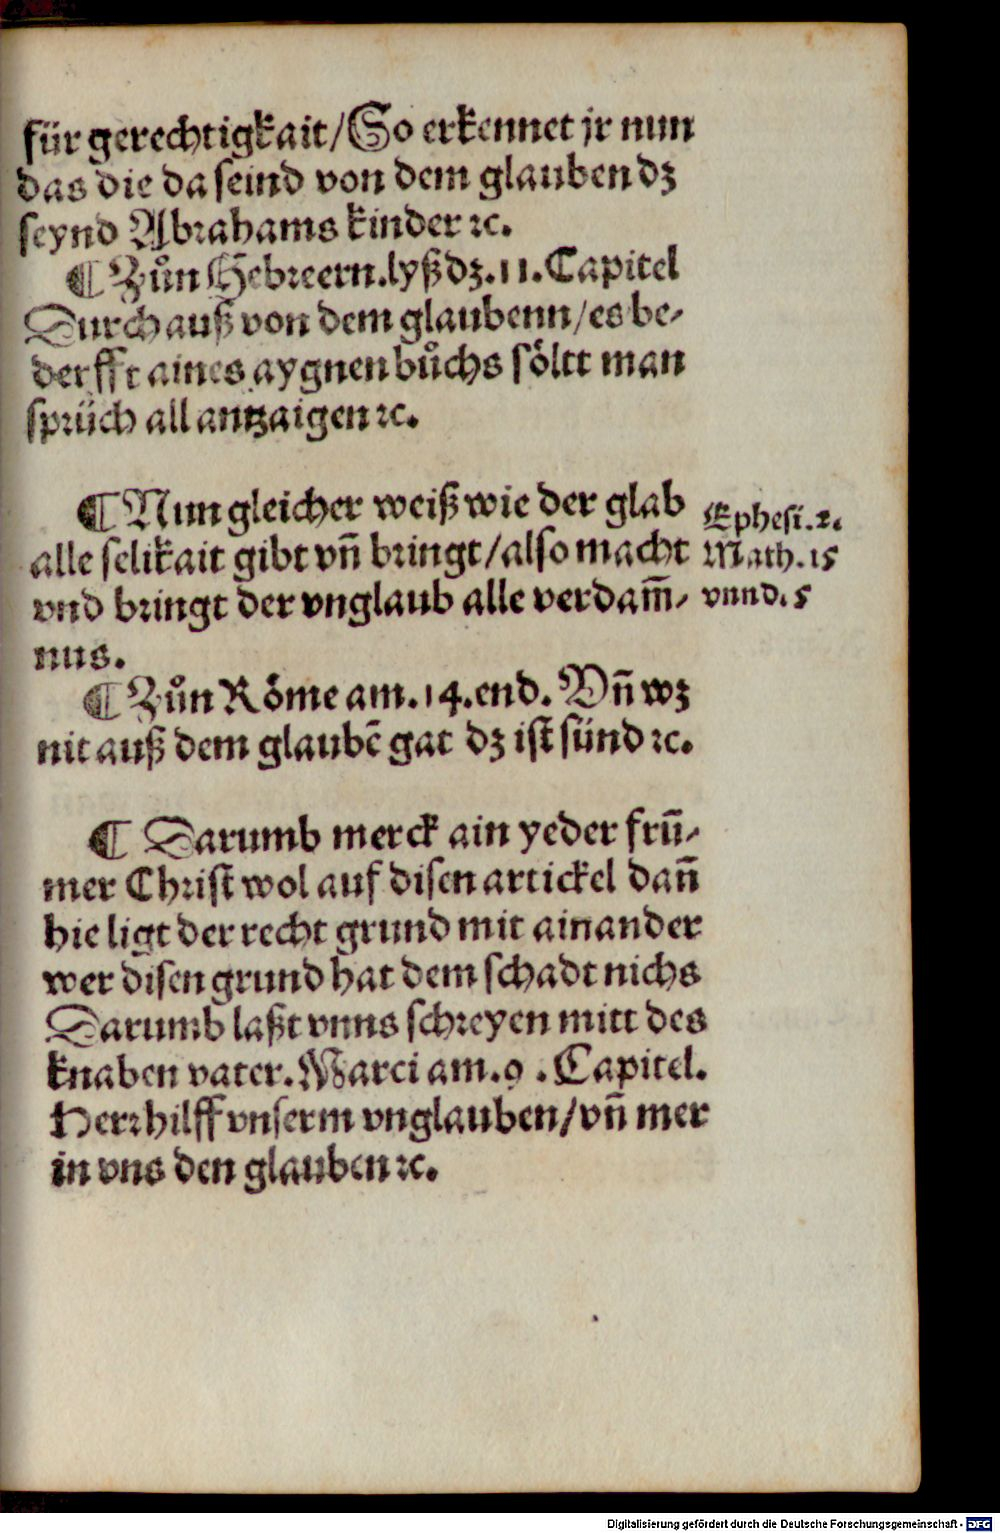 für gerechtigkait/So erkennet jr nun
das die da seind von dem glauben dz
seynd Abrahams kinder ꝛc.
¶ Zůn Hebreern.lyß dz.11.Capitel
Durch auß von dem glaubenn/es be-
derfft aines aygnen bůchs söltt man
sprüch all antzaigen ꝛc.
¶ Nun gleicher weiß wie der glab
alle selikait gibt vñ bringt/also macht
vnd bringt der vnglaub alle verdam̃-
nus.
Ephesi.2.
Math.15
vnnd.5
¶ Zůn Röme am.14.end. Vñ wz
nit auß dem glaubẽ gat dz ist sünd ꝛc.
¶ Darumb merck ain yeder frũ-
mer Christ wol auf disen artickel dañ
hie ligt der recht grund mit ainander
wer disen grund hat dem schadt nichs
Darumb laßt vnns schreyen mitt des
knaben vater.Marci am.9.Capitel.
Herr hilff vnserm vnglauben/vñ mer
in vns den glauben ꝛc.
Digitalisierung gefördert durch die Deutsche Forschungsgemeinschaft - DFG